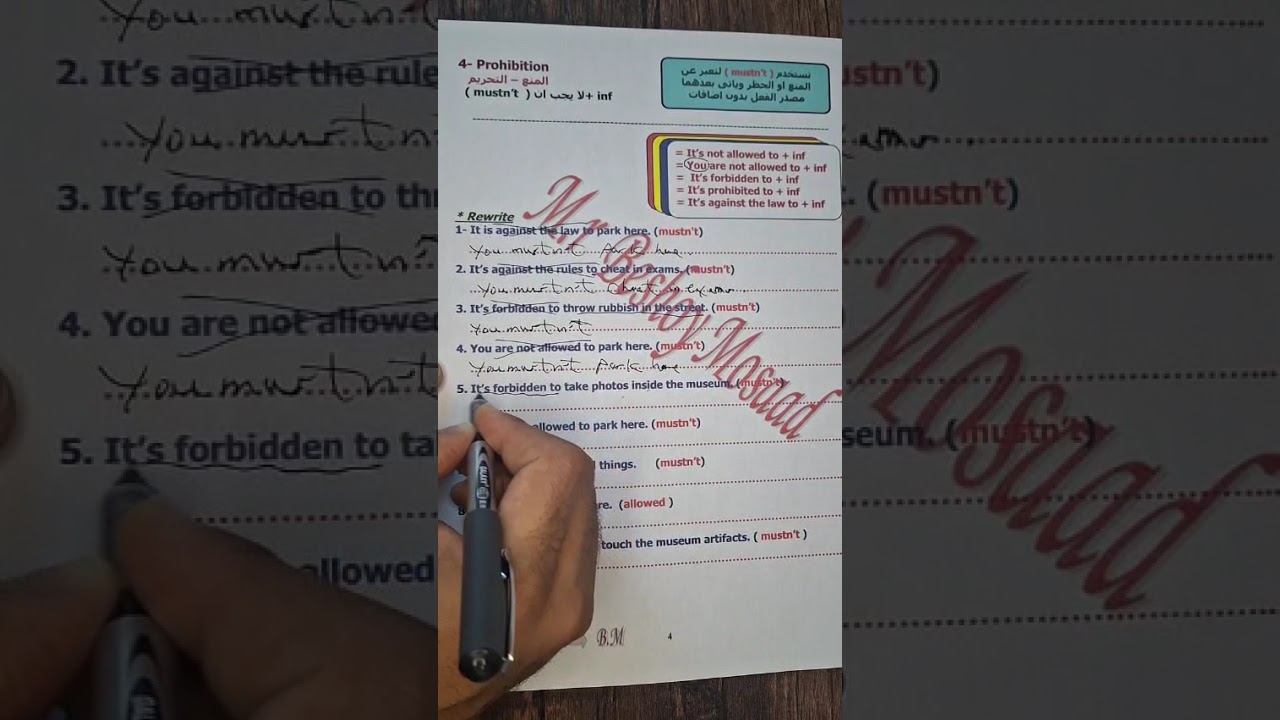 4- Prohibition
المنع – التحريم
( mustn't ) لا يجب ان + inf
تستخدم ( mustn't ) لتعبر عن
المنع او الحظر وياتى بعدهما
مصدر الفعل بدون اضافات
= It's not allowed to + inf
= You are not allowed to + inf
= It's forbidden to + inf
= It's prohibited to + inf
= It's against the law to + inf
* Rewrite
1- It is against the law to park here. (mustn't)
You mustn't park here
2. It's against the rules to cheat in exams. (mustn't)
You mustn't cheat in exams
3. It's forbidden to throw rubbish in the street. (mustn't)
You mustn't
4. You are not allowed to park here. (mustn't)
You mustn't park here
5. It's forbidden to take photos inside the museum. (mustn't)
allowed to park here. (mustn't)
things. (mustn't)
8
re. (allowed )
touch the museum artifacts. ( mustn't )
B.M
4
Mr Beshoy Mosaad